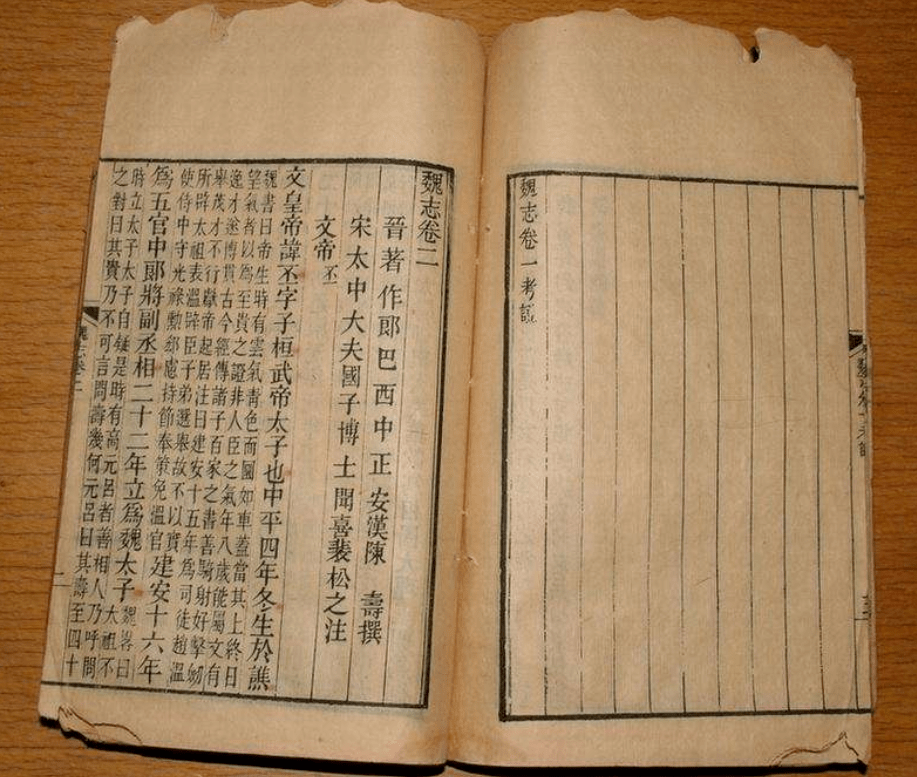 魏志卷一考證
魏志卷二
晉著作郎巴西中正安漢陳 壽撰
宋太中大夫國子博士聞喜裴松之注
文帝丕
文皇帝諱丕字子桓武帝太子也中平四年冬生於譙
魏書曰帝生時有雲氣青色而圜如車蓋當其上終日
望氣者以爲至貴之證非人臣之氣年八歲能屬文有
逸才遂博貫古今經傳諸子百家之書善騎射好擊劒
舉茂才不行獻帝起居注曰建安十五年爲司徒趙溫
所辟太祖表溫辟臣子弟選舉故不以實
使侍中守光祿勳郗慮持節奉策免溫官建安十六年
爲五官中郎將副丞相二十二年立爲魏太子魏略曰太祖不
時立太子太子自疑是時有高元呂者善相人乃呼問
之對曰其貴乃不可言問壽幾何元呂曰其壽至四十
魏志卷二
二